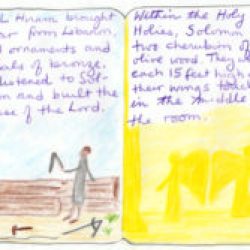 Hiram brought
from Lebanon,
ornaments and
of bronze,
listened to Sol-
and built the
of the Lord.
Within the Holy
Holies, Solomon
two cherubim of
olive wood. They
each 15 feet high
their wings touch
in the middle
the room.